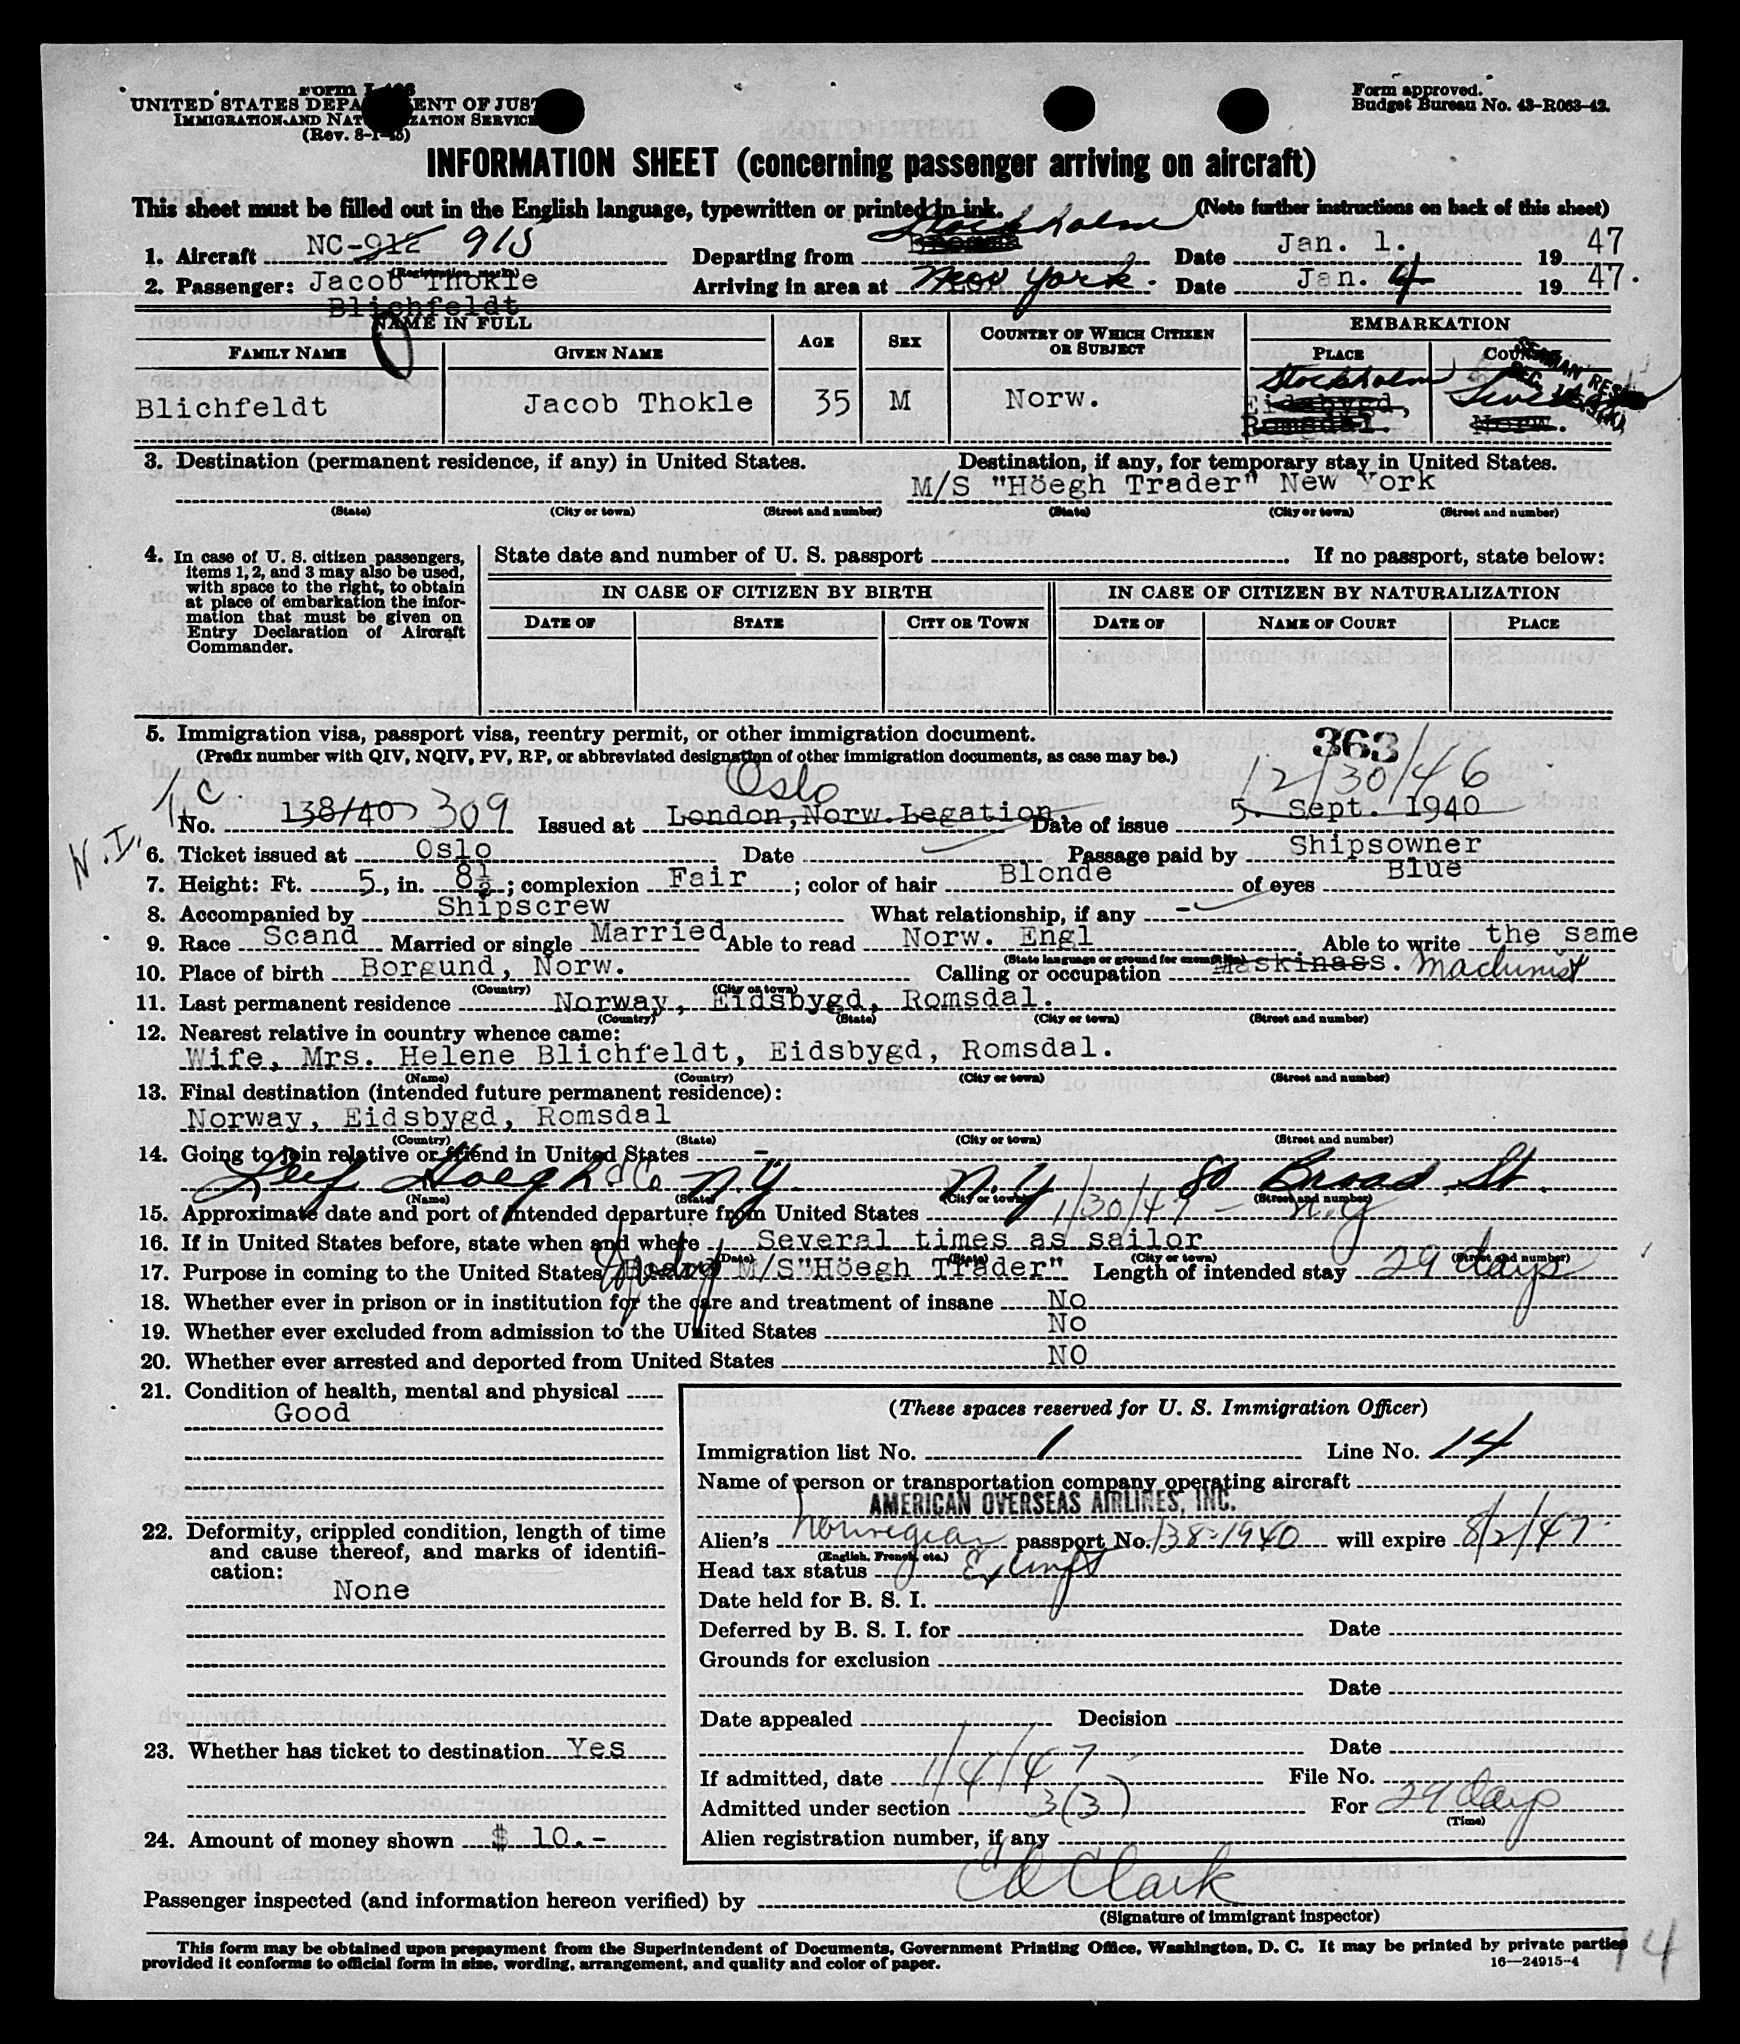 Form I-466
UNITED STATES DEPARTMENT OF JUSTICE
IMMIGRATION AND NATURALIZATION SERVICE
(Rev. 8-1-45)
Form approved.
Budget Bureau No. 43-R063-42.
INFORMATION SHEET (concerning passenger arriving on aircraft)
This sheet must be filled out in the English language, typewritten or printed in ink. (Note further instructions on back of this sheet)
1. Aircraft NC-912 915 Departing from Bromma Stockholm Date Jan. 1. 1947
(Registration marks)
2. Passenger: Jacob Thokle Blichfeldt Arriving in area at New York. Date Jan. 4 1947.
NAME IN FULL AGE SEX COUNTRY OF WHICH CITIZEN OR SUBJECT EMBARKATION
FAMILY NAME GIVEN NAME PLACE COUNTRY
Stockholm Sweden
Blichfeldt Jacob Thokle 35 M Norw. Eidsbygd, Romsdal. Norw.
3. Destination (permanent residence, if any) in United States. Destination, if any, for temporary stay in United States.
M/S "Höegh Trader" New York
(State) (City or town) (Street and number) (State) (City or town) (Street and number)
4. In case of U. S. citizen passengers, items 1, 2, and 3 may also be used, with space to the right, to obtain at place of embarkation the information that must be given on Entry Declaration of Aircraft Commander.
State date and number of U. S. passport . If no passport, state below:
IN CASE OF CITIZEN BY BIRTH IN CASE OF CITIZEN BY NATURALIZATION
DATE OF STATE CITY OR TOWN DATE OF NAME OF COURT PLACE
5. Immigration visa, passport visa, reentry permit, or other immigration document.
(Prefix number with QIV, NQIV, PV, RP, or abbreviated designation of other immigration documents, as case may be.)
363
Oslo 12/30/46
No. 138/40 309 Issued at London, Norw. Legation Date of issue 5. Sept. 1940
N.I.
6. Ticket issued at Oslo Date Passage paid by Shipsowner
7. Height: Ft. 5, in. 8½; complexion Fair; color of hair Blonde of eyes Blue
8. Accompanied by Shipscrew What relationship, if any -
9. Race Scand Married or single Married Able to read Norw. Engl Able to write the same
(State language or ground for exemption)
10. Place of birth Borgund, Norw. Calling or occupation Maskinass. Machinist
(Country) (City or town)
11. Last permanent residence Norway, Eidsbygd, Romsdal.
(Country) (State) (City or town) (Street and number)
12. Nearest relative in country whence came:
Wife, Mrs. Helene Blichfeldt, Eidsbygd, Romsdal.
(Name) (Country) (City or town) (Street and number)
13. Final destination (intended future permanent residence):
Norway, Eidsbygd, Romsdal
(Country) (State) (City or town) (Street and number)
14. Going to join relative or friend in United States -
Leif Hoegh & Co N.Y. N.Y 80 Broad St.
(Name) (State) (City or town) (Street and number)
15. Approximate date and port of intended departure from United States 1/30/47 - N.Y
16. If in United States before, state when and where Several times as sailor
(Date) (State) (City or town) (Street and number)
17. Purpose in coming to the United States M/S"Höegh Trader" Length of intended stay 29 days
18. Whether ever in prison or in institution for the care and treatment of insane No
19. Whether ever excluded from admission to the United States No
20. Whether ever arrested and deported from United States NO
21. Condition of health, mental and physical
Good
22. Deformity, crippled condition, length of time and cause thereof, and marks of identification:
None
23. Whether has ticket to destination Yes
24. Amount of money shown $ 10.-
(These spaces reserved for U. S. Immigration Officer)
Immigration list No. 1 Line No. 14
Name of person or transportation company operating aircraft
AMERICAN OVERSEAS AIRLINES, INC.
Alien's Norwegian passport No. 138-1940 will expire 8/2/47
(English, French, etc.)
Head tax status Exempt
Date held for B. S. I.
Deferred by B. S. I. for Date
Grounds for exclusion
Date
Date appealed Decision
Date
If admitted, date 1/4/47 File No.
Admitted under section 3(3) For 29 days
(Time)
Alien registration number, if any
Passenger inspected (and information hereon verified) by Clark
(Signature of immigrant inspector)
This form may be obtained upon prepayment from the Superintendent of Documents, Government Printing Office, Washington, D. C. It may be printed by private parties
provided it conforms to official form in size, wording, arrangement, and quality and color of paper.
16—24915-4
14